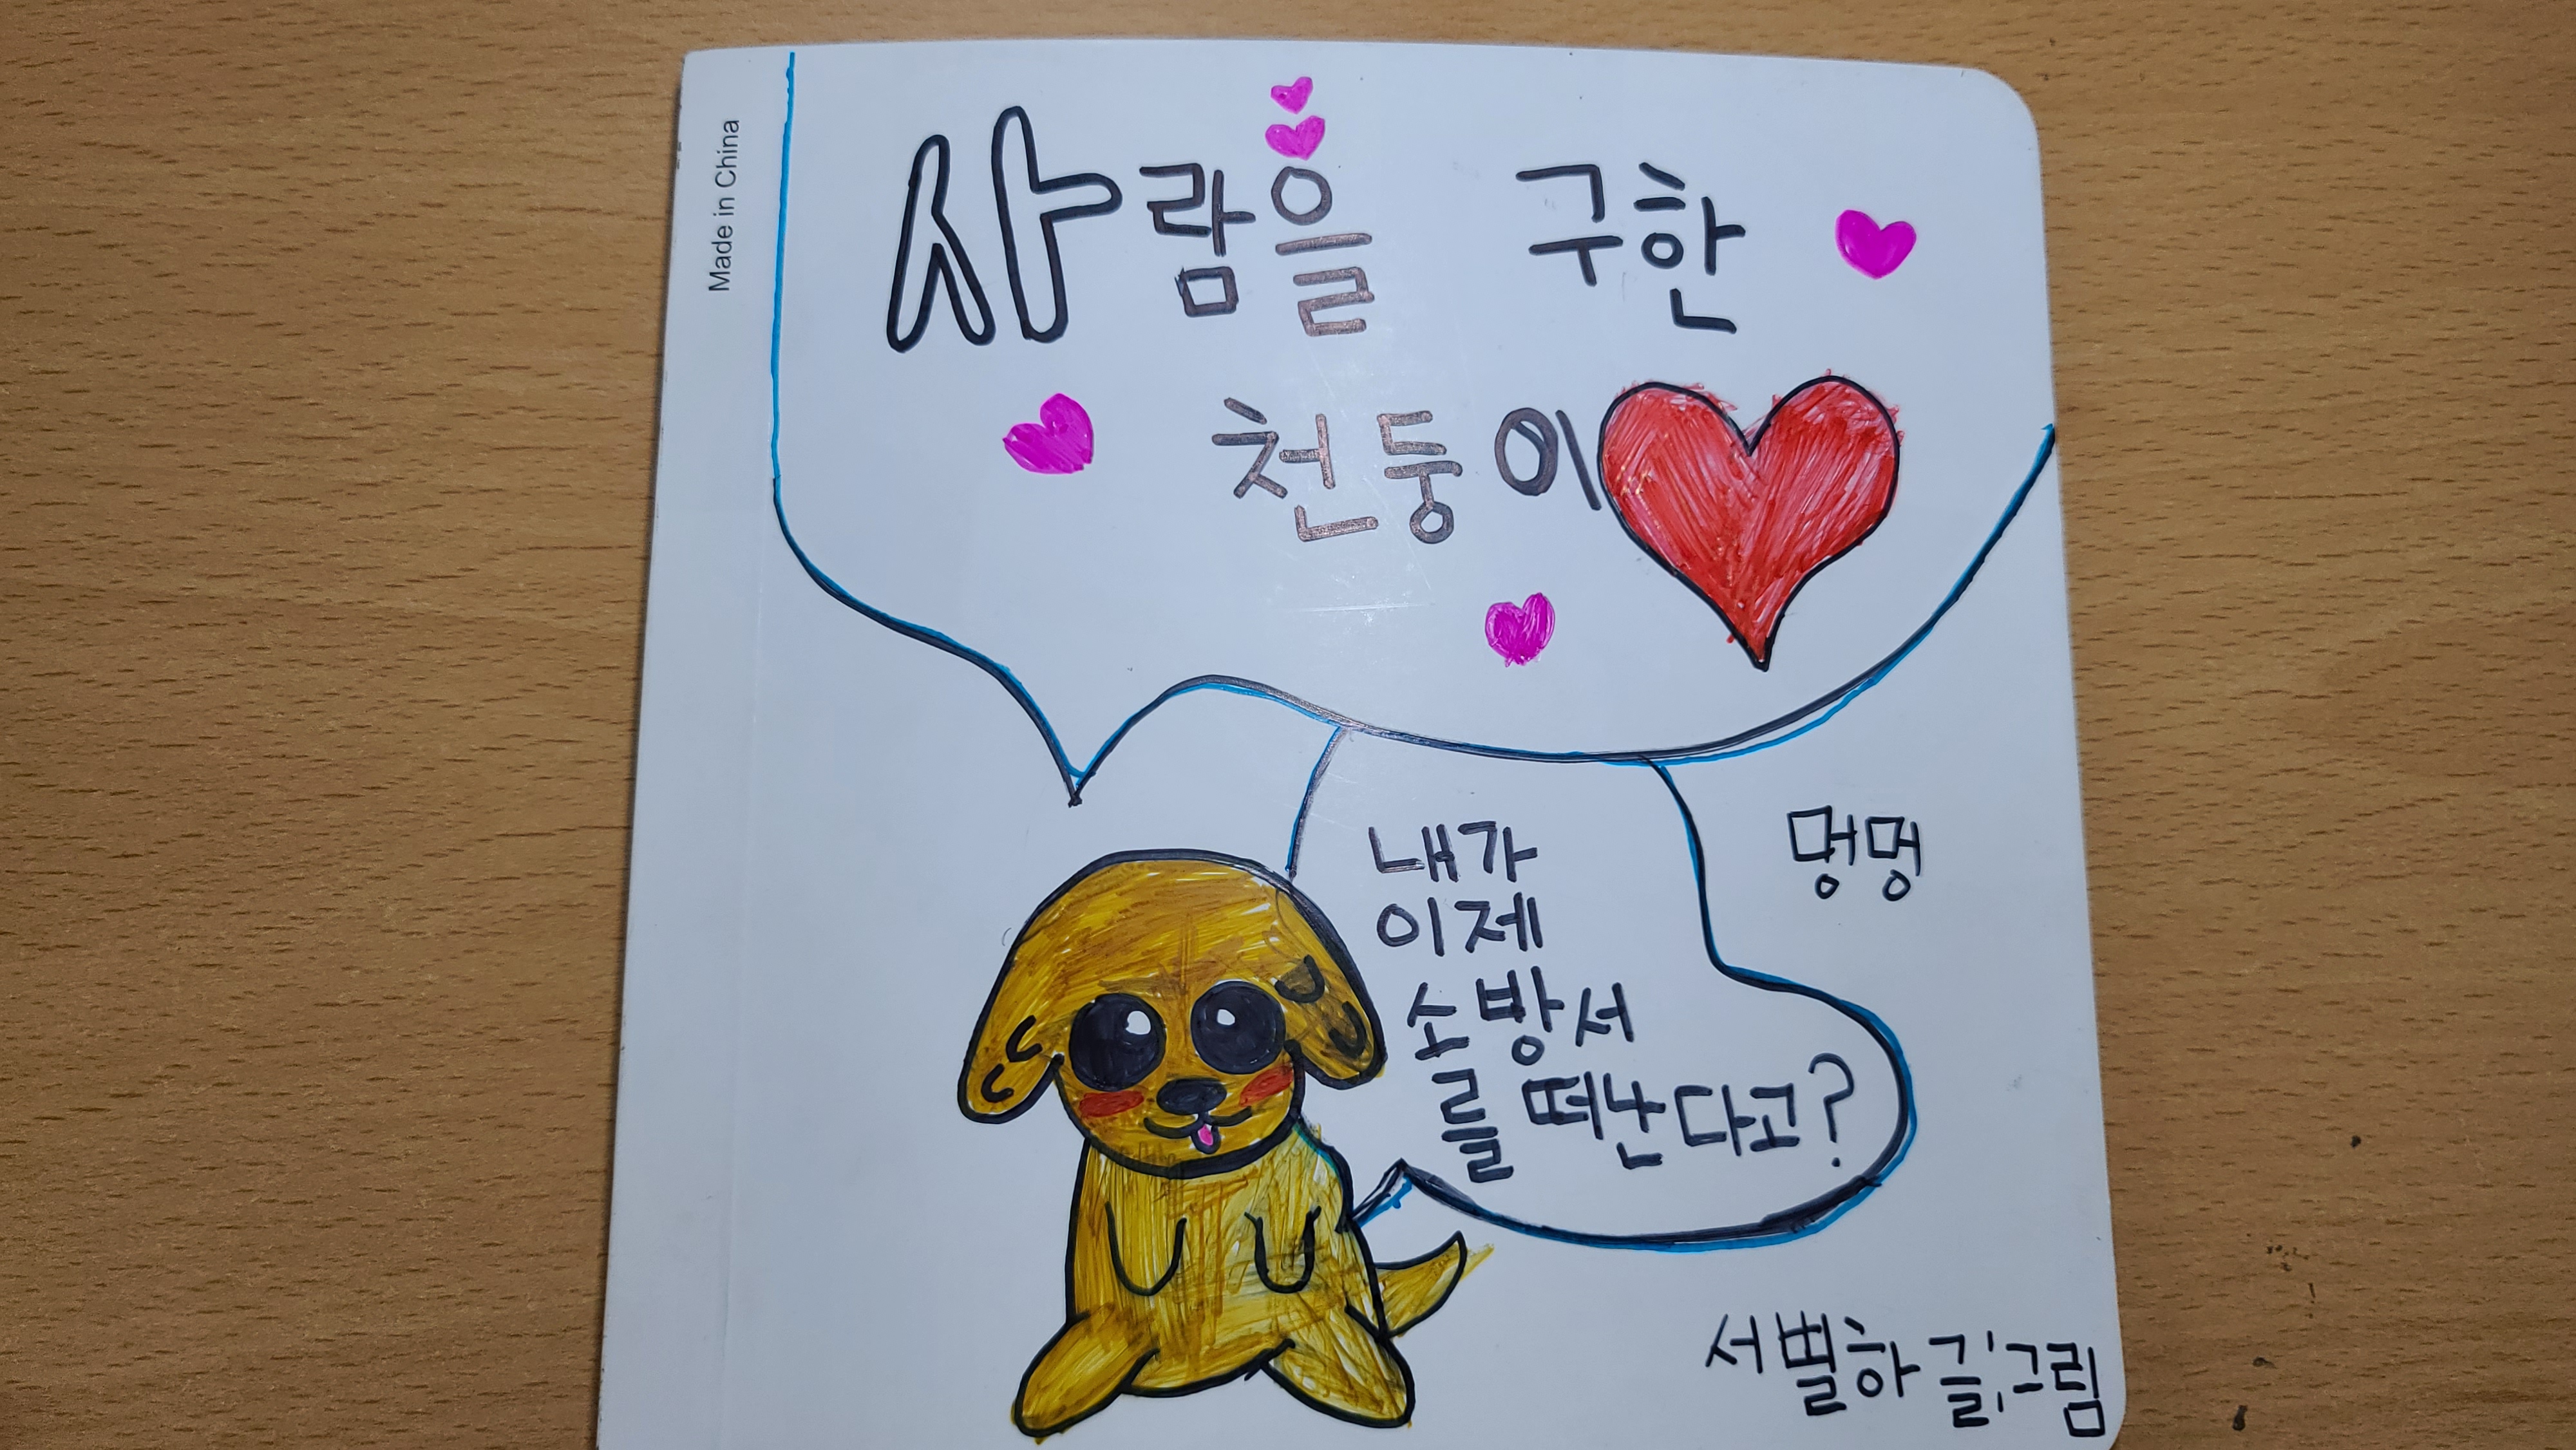 Made in China
사람을 구한
천둥이
멍멍
내가
이제
소방서
를 떠난다고?
서별하 글,그림